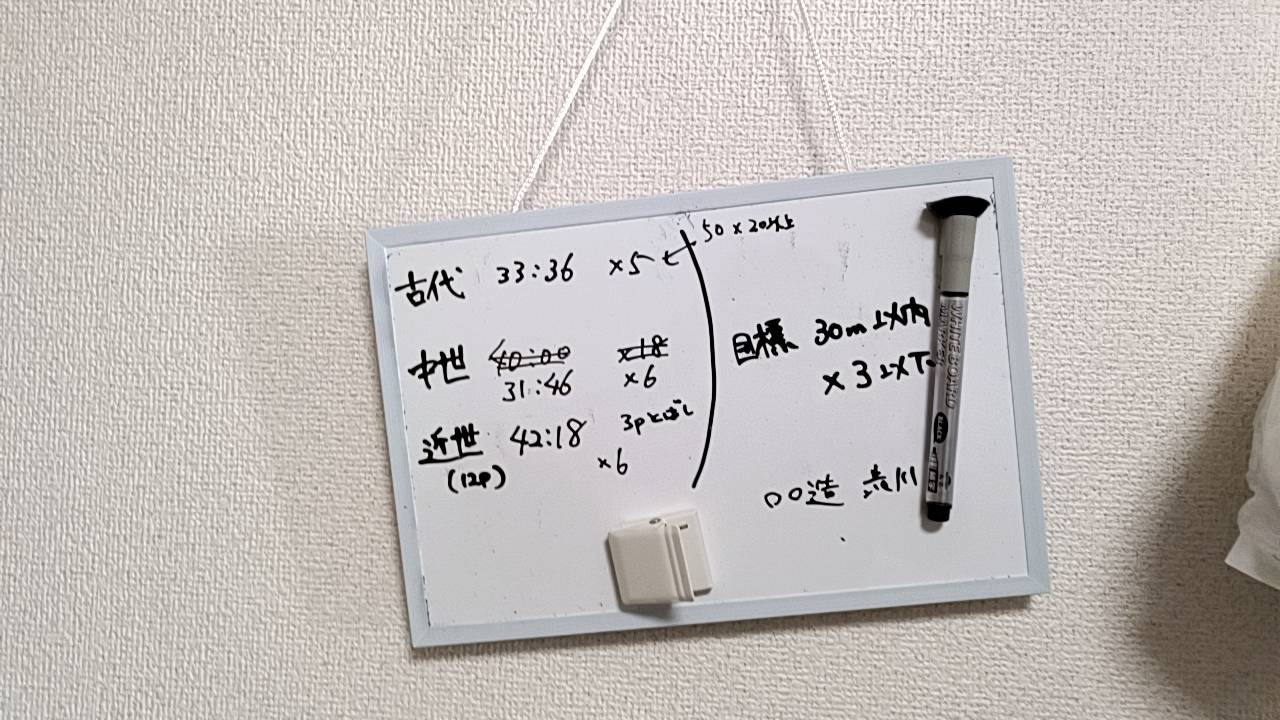 古代 33:36 ×5
50×20以上
中世 40:00 ×18
31:46 ×6
近世 42:18 3pとばし
(12P) ×6
目標 30m以内
×3以下
〇〇造
WHITE BOARD
MARKER
BLACK